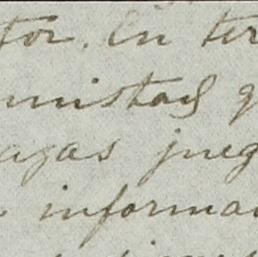 tor. En ter
mistad q
agas jueg
informa